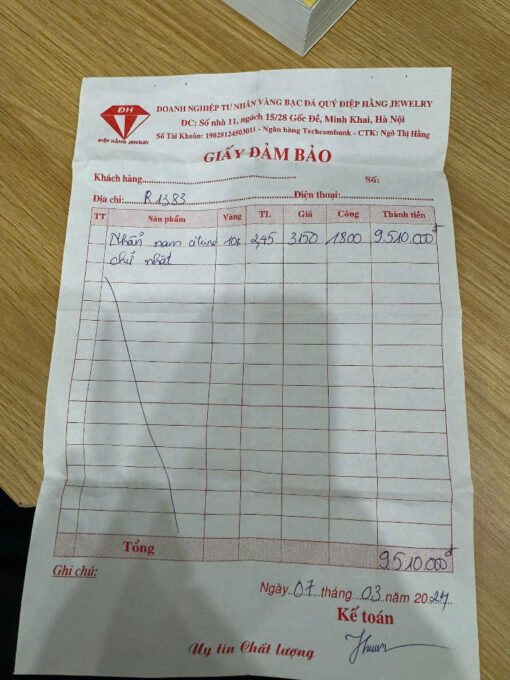 ĐH
ĐIỆP HẰNG JEWELRY
DOANH NGHIỆP TƯ NHÂN VÀNG BẠC ĐÁ QUÝ ĐIỆP HẰNG JEWELRY
ĐC: Số nhà 11, ngách 15/28 Gốc Đề, Minh Khai, Hà Nội
Số Tài Khoản: 19028124503011 - Ngân hàng Techcombank - CTK: Ngô Thị Hằng
GIẤY ĐẢM BẢO
Khách hàng
Số:
Địa chỉ: R1383 Điện thoại:
TT Sản phẩm Vàng TL Giá Công Thành tiền
Nhẫn nam 10k 2,45 3150 1800 9.510.000đ
chữ nhật
Tổng 9510.000đ
Ghi chú:
Ngày 07 tháng 03 năm 2024
Kế toán
Uy tín Chất lượng